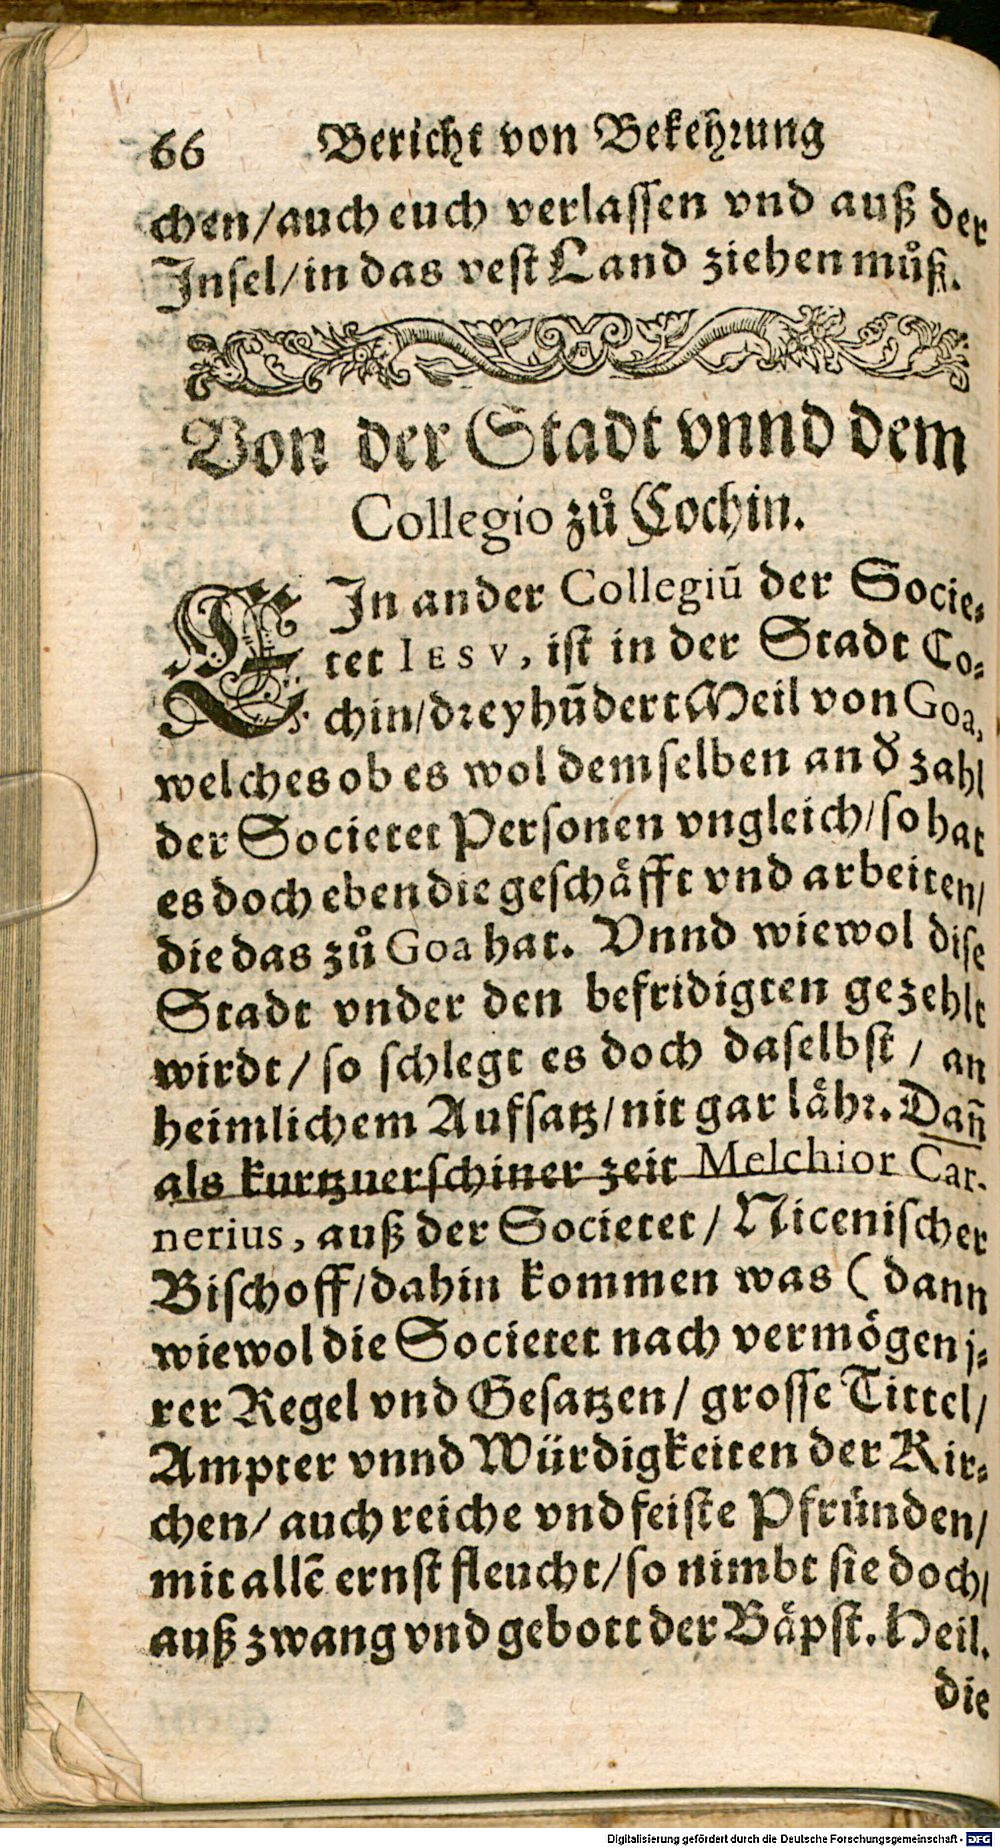 66 Bericht von Bekehrung
chen/auch euch verlassen vnd auß der
Insel/in das vest Land ziehen můß.
Von der Stadt vnnd dem
Collegio zů Cochin.
EIn ander Collegiũ der Socie-
tet IESV, ist in der Stadt Co-
chin/dreyhũdert Meil von Goa,
welches ob es wol demselben an d̕ zahl
der Societet Personen vngleich/so hat
es doch eben die geschäfft vnd arbeiten/
die das zů Goa hat. Vnnd wiewol dise
Stadt vnder den befridigten gezehlt
wirdt/so schlegt es doch daselbst/an
heimlichem Aufsatz/nit gar lähr. Dañ
als kurtzuerschiner zeit Melchior Car-
nerius, auß der Societet/Nicenischer
Bischoff/dahin kommen was (dann
wiewol die Societet nach vermögen j-
rer Regel vnd Gesatzen/grosse Tittel/
Ampter vnnd Würdigkeiten der Kir-
chen/auch reiche vnd feiste Pfründen/
mit allẽ ernst fleucht/so nimbt sie doch/
auß zwang vnd gebott der Bäpst. Heil.
die
Digitalisierung gefördert durch die Deutsche Forschungsgemeinschaft - DFG